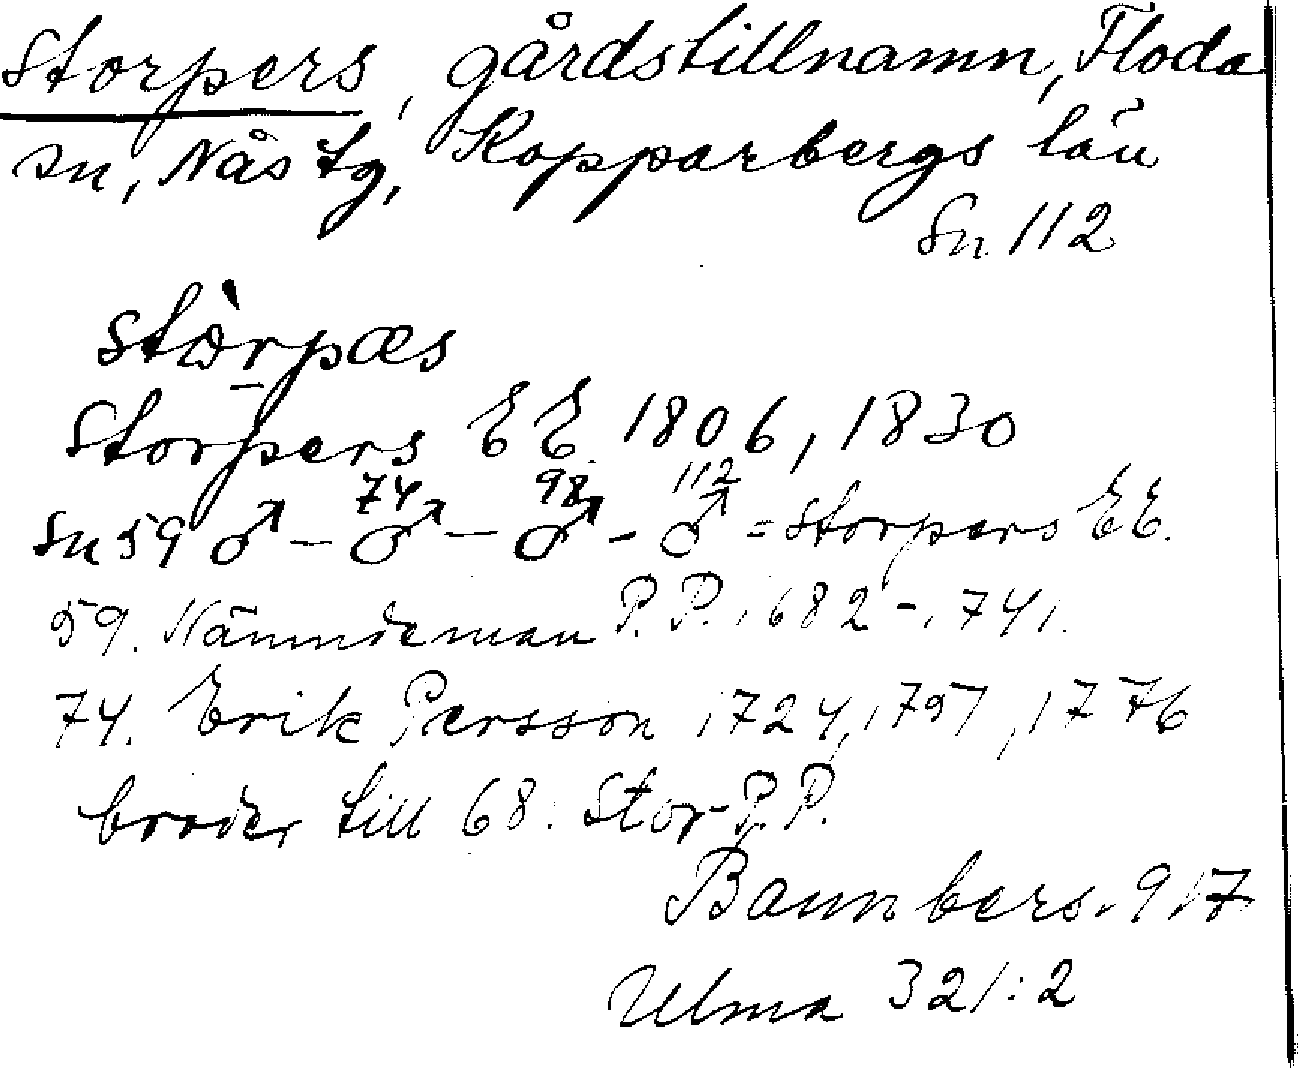 Storpers, gårdstillnamn, Floda
sn, Nås tg, Kopparbergs län
Sn 112
stòrpæs
Storpers E E. 1806, 1830
Sn 59 ♂ – 74 ♂ – 98 ♂ – 112 ♂ = Storpers E E.
59. Nämndeman P. P. 1682 - 1741.
74. Erik Persson 1724, 1757, 1776
broder till 68. Stor-P. P.
1917
Ulma 321:2